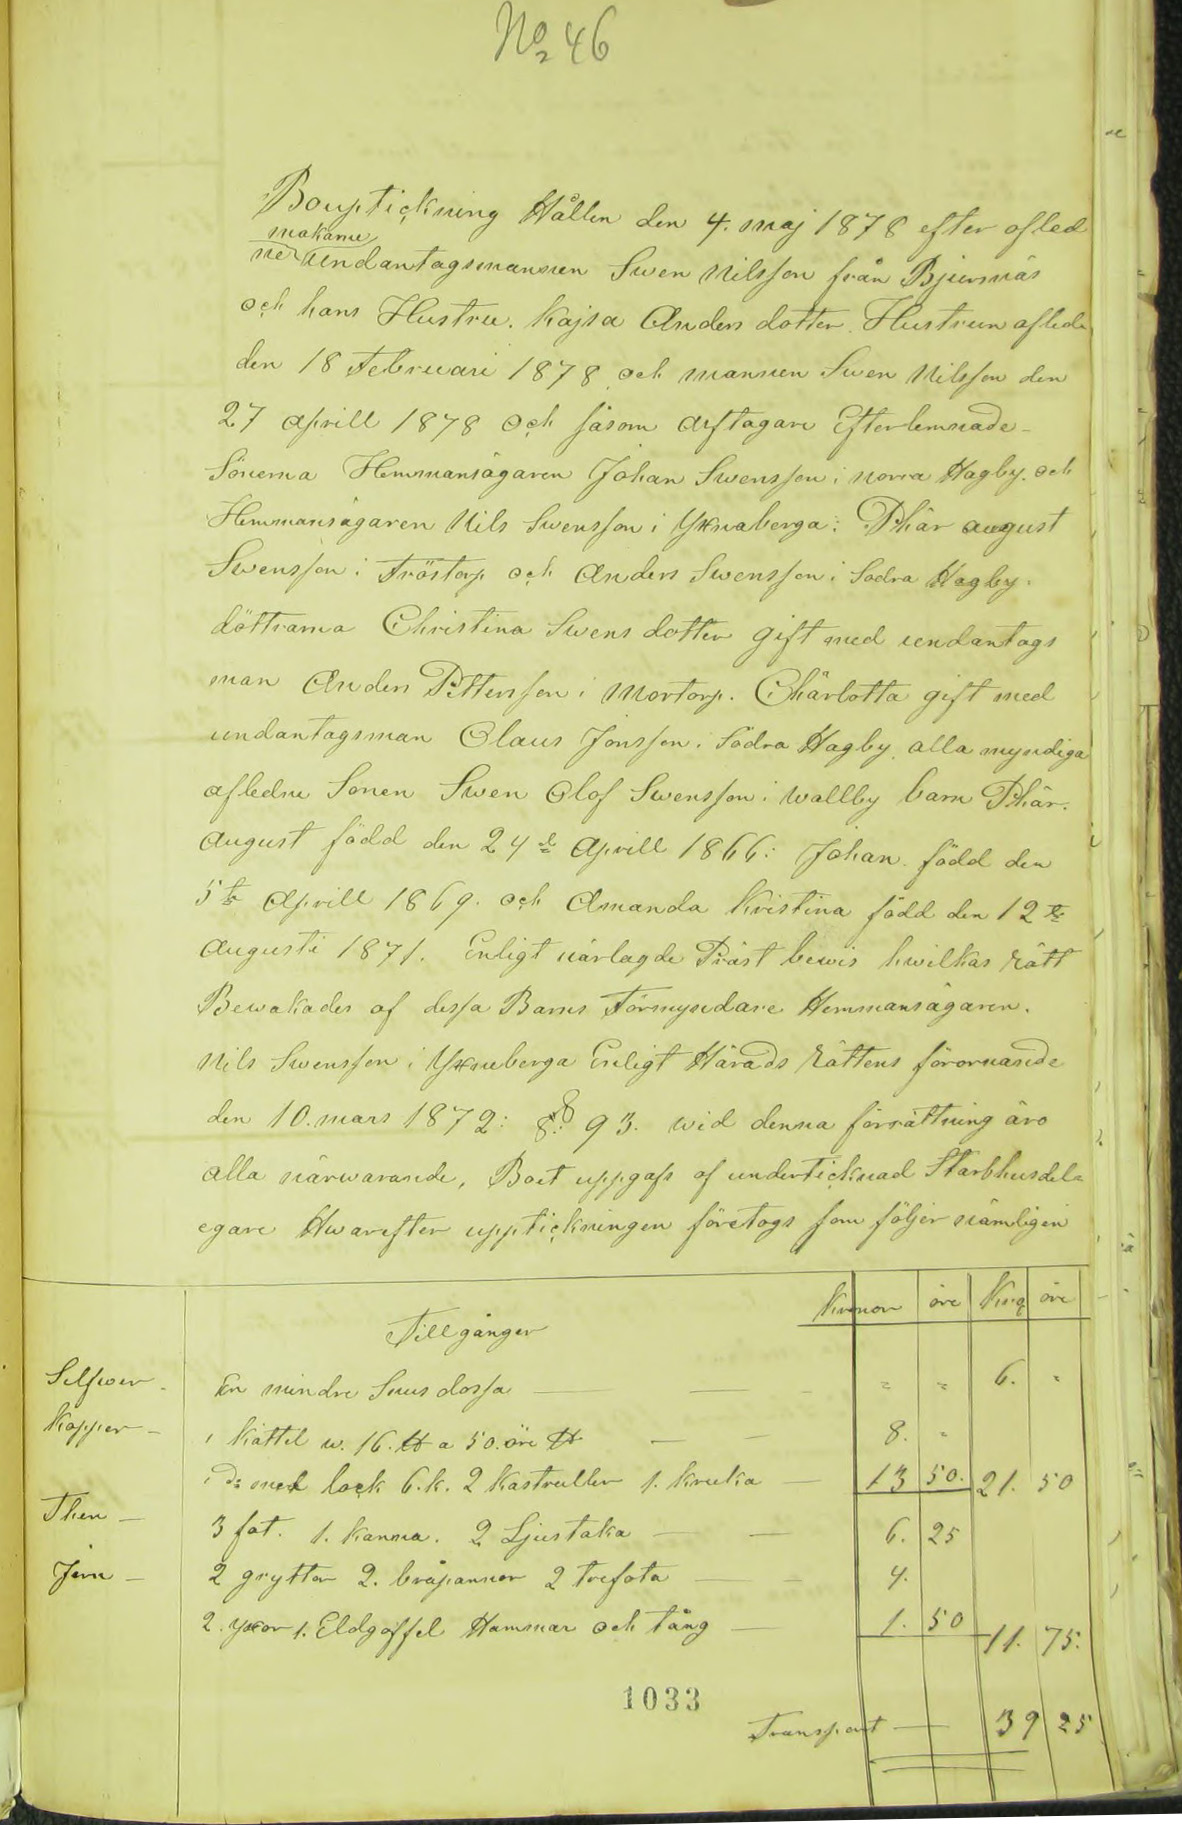 No 46
Bouptickning Hållen den 4. maj 1878 efter afled
makarne
ne undantagsmannen Swen Nilsson från Bjursnäs
och hans Hustru. Kajsa Anders dotter. Hustrun afled
den 18 Februari 1878 och mannen Swen Nilsson den
27 Aprill 1878 och såsom arftagare Efterlemnade
Sönerna Hemmansägaren Johan Swensson i norra Hagby. och
Hemmansägaren Nils Swensson i Yxnaberga: Pehär august
Swensson i Tröstorp och Anders Swensson i Södra Hagby.
döttrarna Christina Swens dotter gift med undantags
man Anders Pettersson i Mortorp. Chärlotta gift med
undantagsman Olaus Jonsson i Södra Hagby alla myndiga
afledne Sonen Swen Olof Swensson i Wallby barn Pehär.
August född den 24de Aprill 1866: Johan född den
5te Aprill 1869. och Amanda Kristina född den 12te
Augusti 1871. Enligt närlagde Präst bewis hwilkas rätt
Bewakades af dessa Barns Förmyndare Hemmansägaren.
Nils Swensson i Yxneberga Enligt Härads Rättens förornande
den 10. mars 1872: §: 93. wid denna förrättning äro
alla närwarande, Boet uppgafs af undertecknad Stärbhusdel=
egare Hwarefter upptickningen företogs som följer nämligen
Kronor öre King öre
Tillgånger
Selfwer. En mindre Snus dossa — — - = = 6. "
Kopper — 1 Kättel w. 16. ℔ a 50. öre ℔ — — 8. "
1 Do med lock 6. k. 2 Kastruller 1. Kruka — 13 50. 21. 50
Then — 3 fat. 1. Kanna. 2 Ljustaka — — 6. 25
Jern — 2 gryttor 2. bråpannor 2 trefota — 4.
2. yxor 1. Eldgaffel Hammar och tång — 1. 50 11. 75.
1033
Transport — 39 25